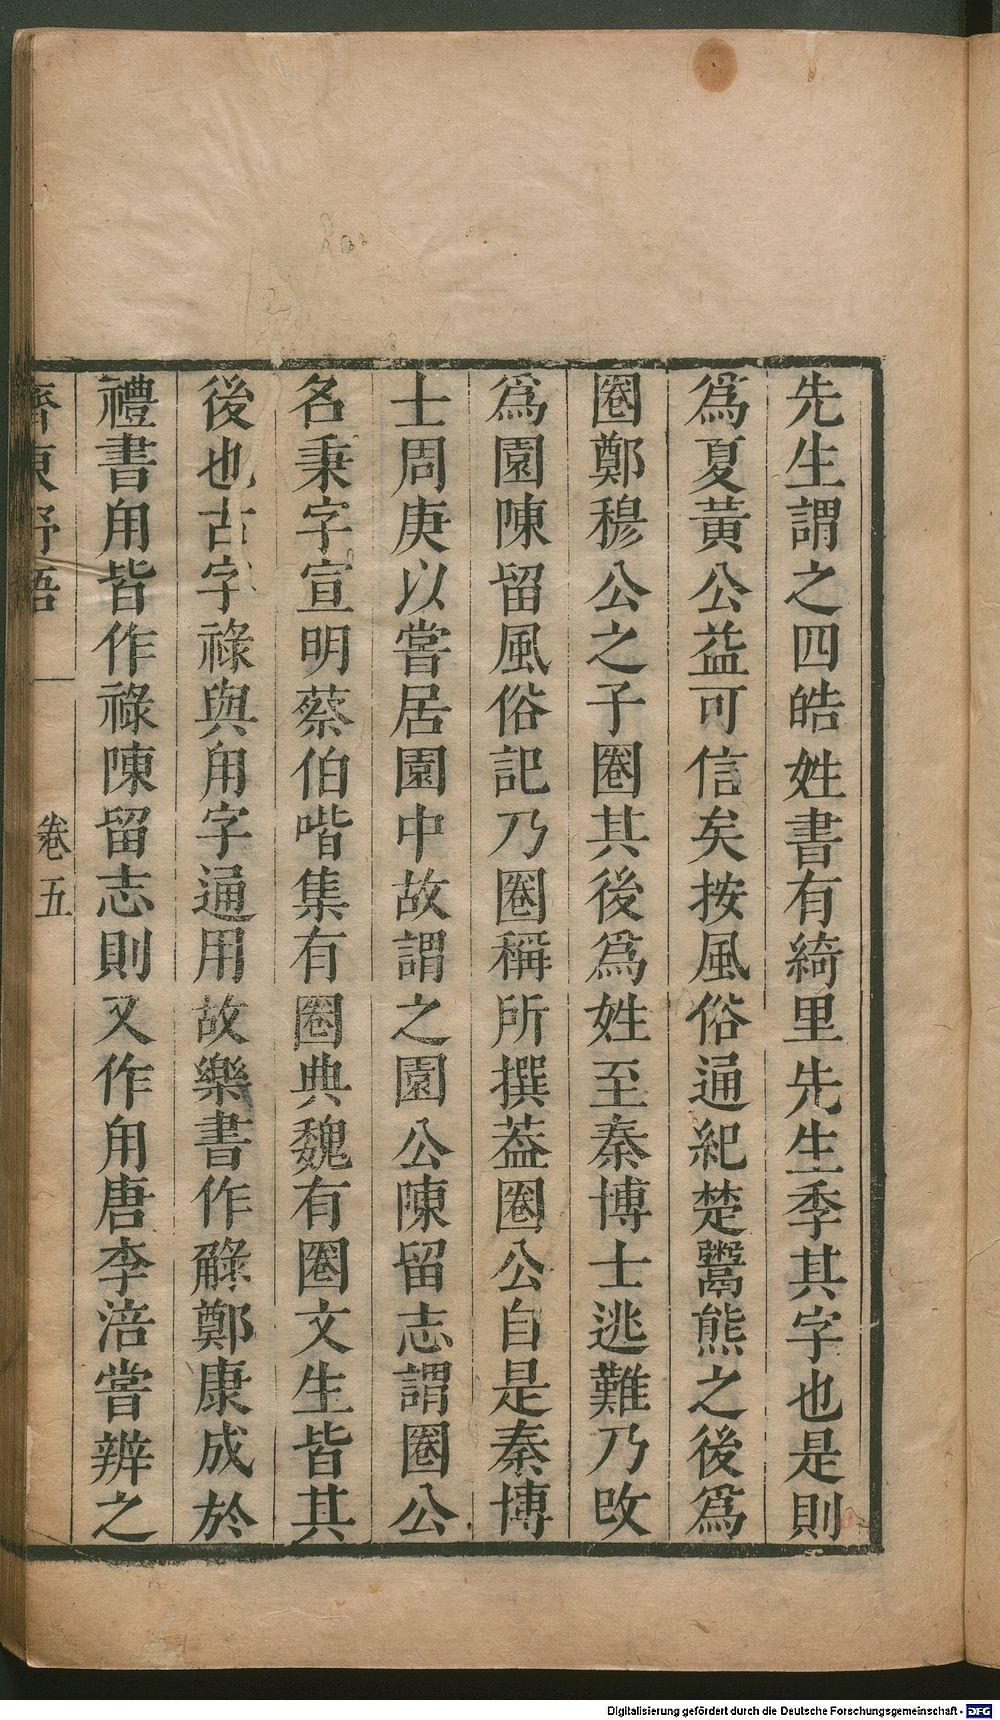 先生謂之四皓姓書有綺里先生季其字也是則
爲夏黃公益可信矣按風俗通紀楚鬻熊之後爲
圈鄭穆公之子圈其後爲姓至秦博士逃難乃改
爲園陳留風俗記乃圈稱所撰葢圈公自是秦博
士周庚以嘗居園中故謂之園公陳留志謂圈公
名秉字宣明蔡伯喈集有圈典魏有圈文生皆其
後也古字祿與甪字通用故樂書作觮鄭康成於
禮書甪皆作祿陳留志則又作甪唐李涪嘗辨之
齊東野語 卷五
Digitalisierung gefördert durch die Deutsche Forschungsgemeinschaft - DFG